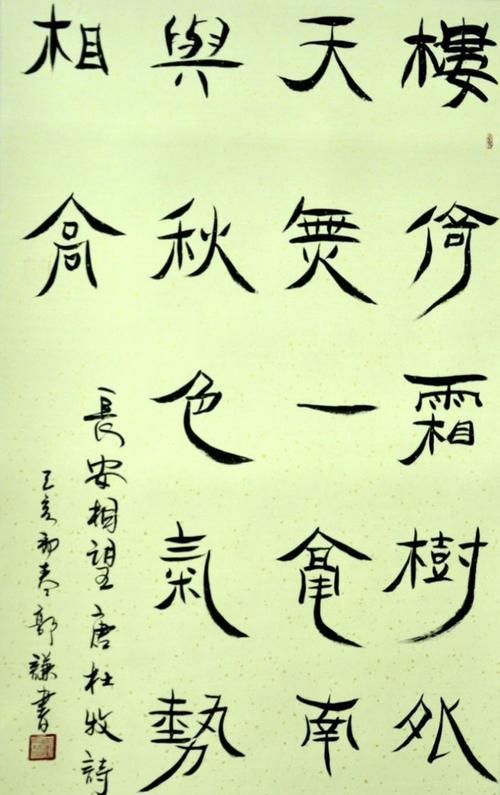 樓倚霜樹外
天無一毫南
與秋色氣勢
相高
長安相望唐杜牧詩
己亥初春郭謙書